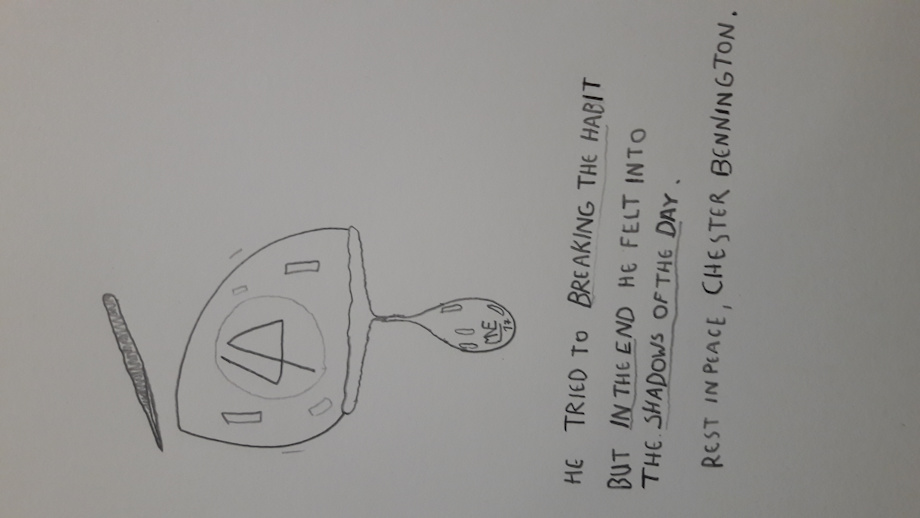 HE TRIED TO BREAKING THE HABIT
BUT IN THE END HE FELT INTO
THE SHADOWS OF THE DAY.
REST IN PEACE, CHESTER BENNINGTON.